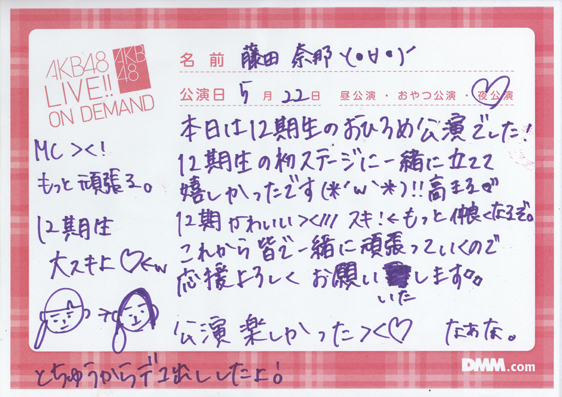 AKB48
LIVE!!
ON DEMAND
AKB
48
名前 藤田 奈那ヾ(•∀•)ノ
公演日 5月22日 昼公演・おやつ公演・夜公演
本日は12期生のおひろめ公演でした!
12期生の初ステージに一緒に立てて
嬉しかったです(*'w`*)!!高まる♡
12期かわいい><///スキ!←もっと仲良くなるぞ。
これから皆で一緒に頑張っていくので
応援よろしくお願いします。
いた
公演楽しかった><♡ なぁな。
MC><!
もっと頑張る。
12期生
大スキよ♡←w
とちゅうからデコ出ししたよ!
DMM.com